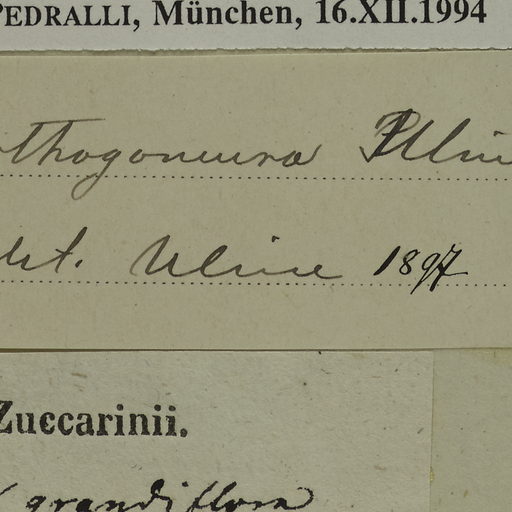 PEDRALLI, München, 16.XII.1994
rthogoneura Uline
det. Uline 1897
Zuccarinii.
grandiflora